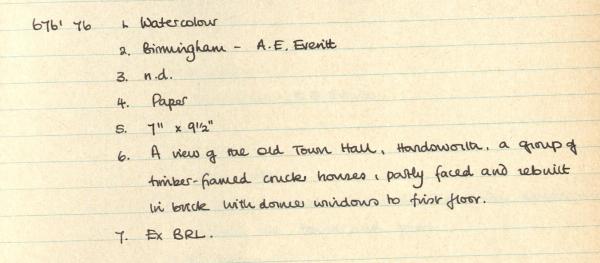 676' 76 1. Watercolour
2. Birmingham - A.E. Everitt
3. n.d.
4. Paper
5. 7" x 9½"
6. A view of the old Town Hall, Handsworth, a group of
timber-framed cruck houses, partly faced and rebuilt
in brick with dormer windows to first floor.
7. Ex BRL.